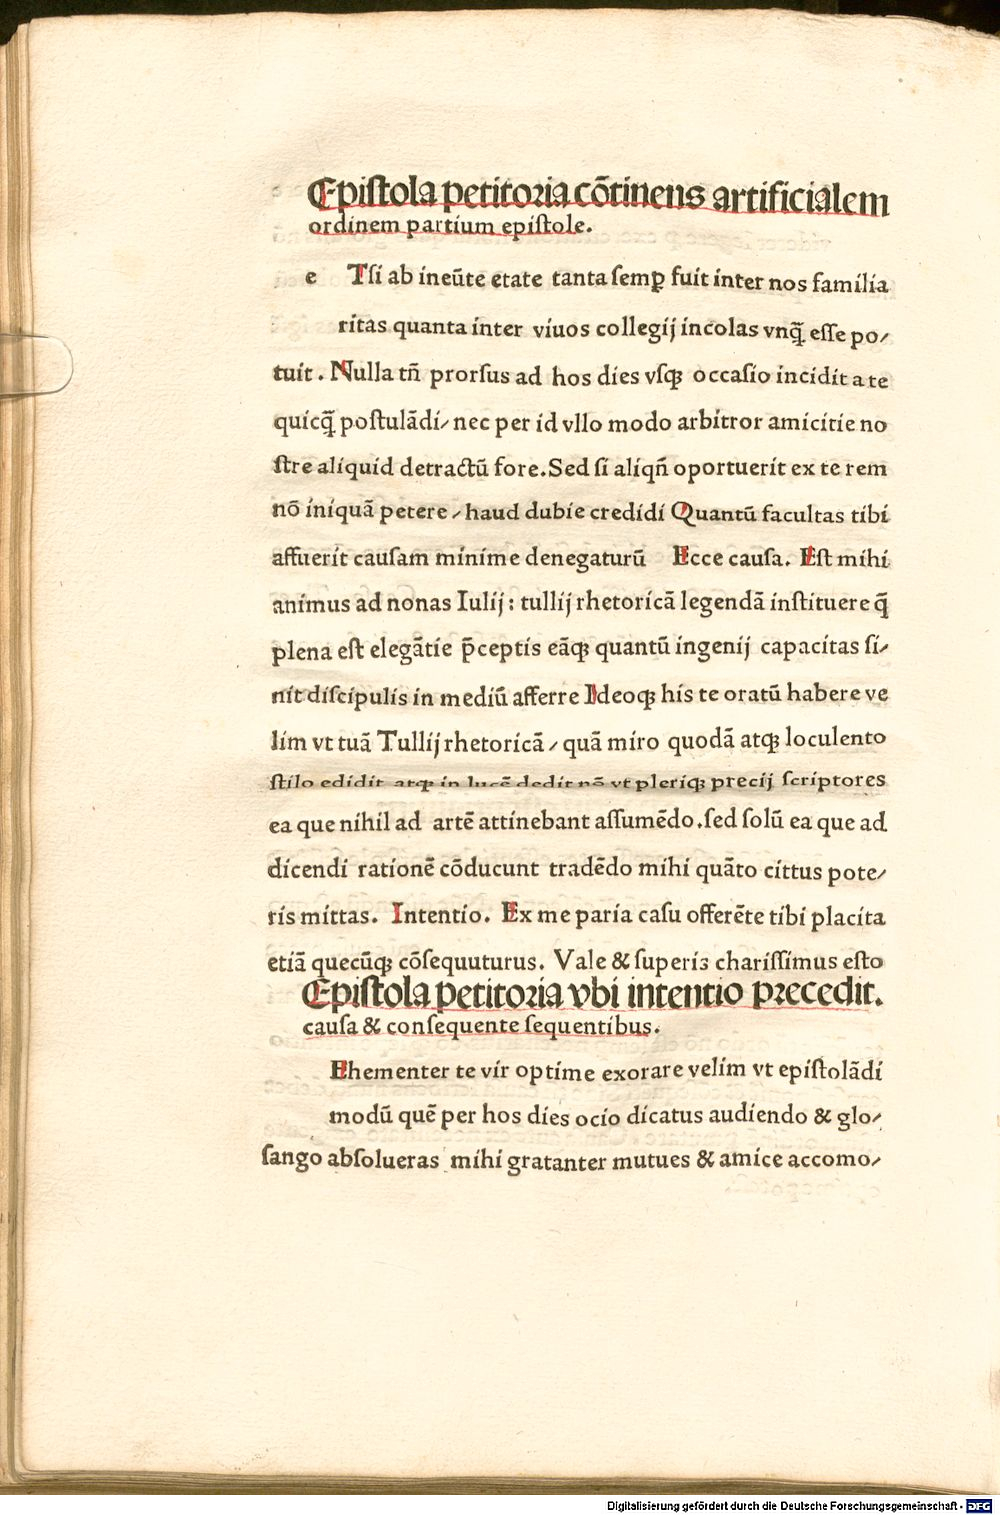 Epistola petitoria cõtinens artificialem
ordinem partium epistole.
e Tsi ab ineũte etate tanta semꝑ fuit inter nos familia
ritas quanta inter viuos collegij incolas vnq̃ esse po/
tuit. Nulla tñ prorsus ad hos dies vsqꝫ occasio incidit a te
quicq̃ postulãdi/ nec per id vllo modo arbitror amicitie no
stre aliquid detractũ fore. Sed si aliqñ oportuerit ex te rem
nõ iniquã petere/ haud dubie credidi Quantũ facultas tibi
affuerit causam minime denegaturũ Ecce causa. Est mihi
animus ad nonas Iulij: tullij rhetoricã legendã instituere q̃
plena est elegãtie p̃ceptis eãqꝫ quantũ ingenij capacitas si/
nit discipulis in mediũ afferre Ideoqꝫ his te oratũ habere ve
lim vt tuã Tullij rhetoricã/ quã miro quodã atqꝫ loculento
stilo edidit atqꝫ in lucẽ dedit nõ vt pleriqꝫ precij scriptores
ea que nihil ad artẽ attinebant assumẽdo. sed solũ ea que ad
dicendi rationẽ cõducunt tradẽdo mihi quãto cittus pote/
ris mittas. Intentio. Ex me paria casu offerẽte tibi placita
etiã quecũqꝫ cõsequuturus. Vale & superis charissimus esto
Epistola petitoria vbi intentio precedit.
causa & consequente sequentibus.
Ehementer te vir optime exorare velim vt epistolãdi
modũ quẽ per hos dies ocio dicatus audiendo & glo/
sango absolueras mihi gratanter mutues & amice accomo/
Digitalisierung gefördert durch die Deutsche Forschungsgemeinschaft - DFG